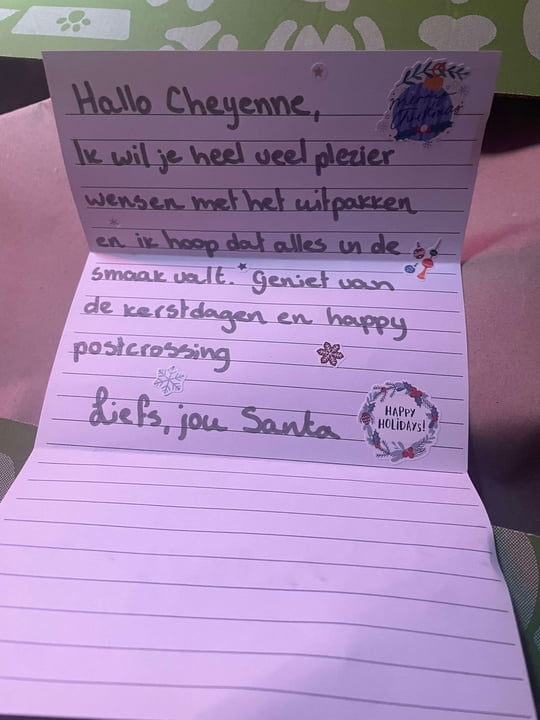 Hallo Cheyenne,
Ik wil je heel veel plezier
wensen met het uitpakken
en ik hoop dat alles in de
smaak valt. Geniet van
de kerstdagen en happy
postcrossing
Liefs, jou Santa
HAPPY
HOLIDAYS!